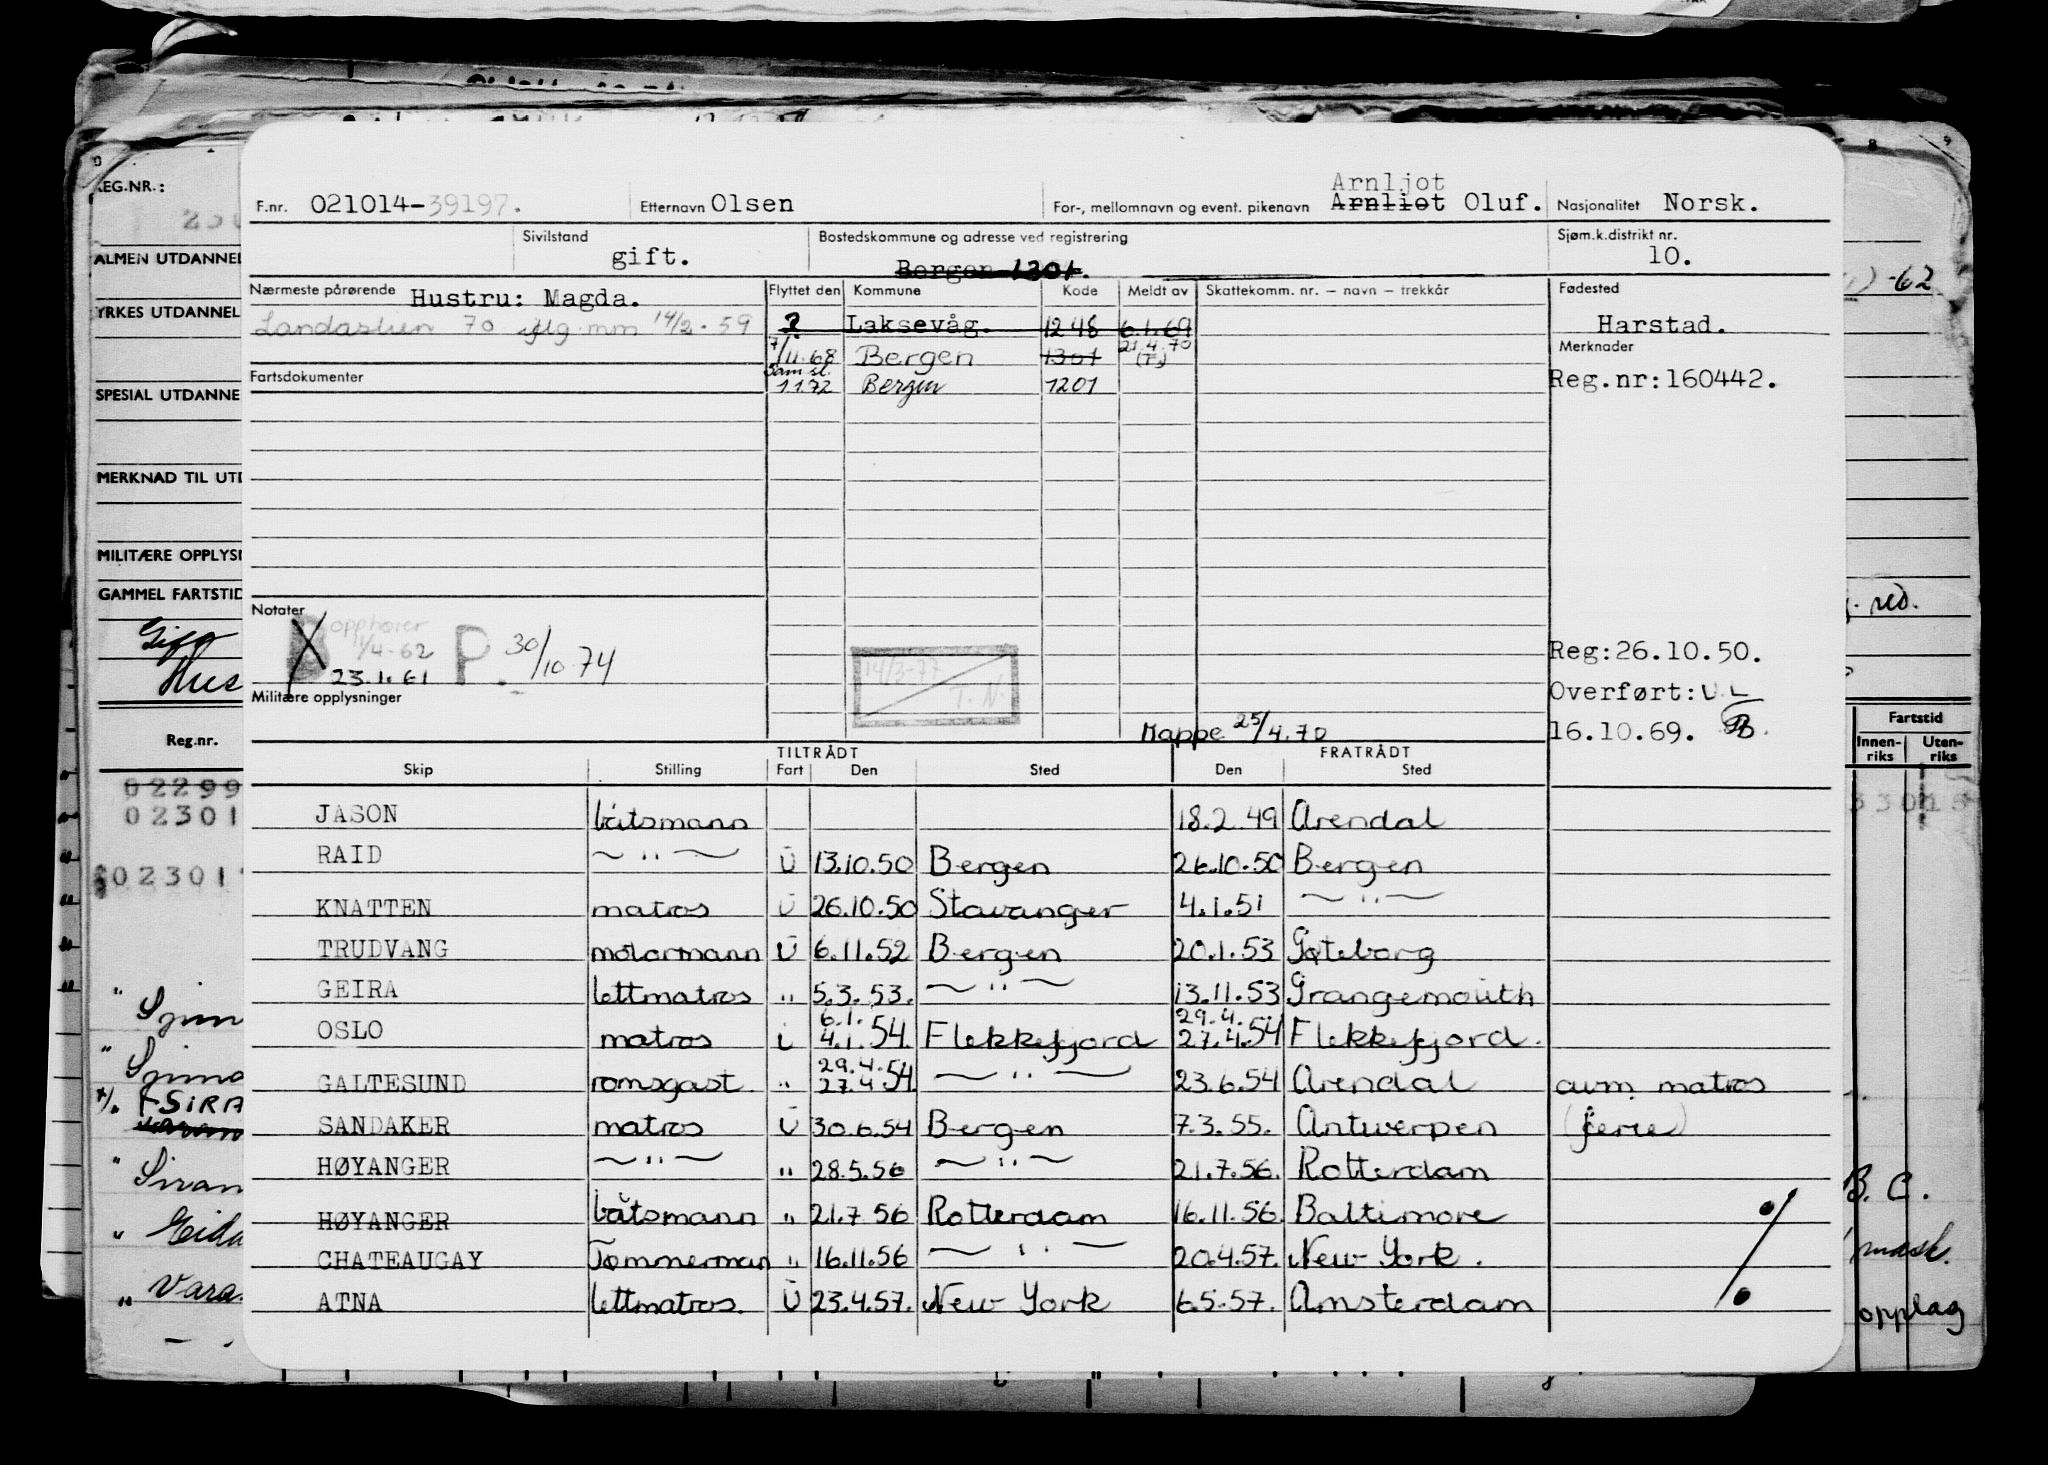 F.nr. 021014-39197. Etternavn Olsen For-, mellomnavn og event. pikenavn Arnliot Arnljot Oluf. Nasjonalitet Norsk.
Sivilstand gift. Bostedskommune og adresse ved registrering Bergen 1301. Sjøm.k.distrikt nr. 10.
Nærmeste pårørende Hustru: Magda. Flyttet den Kommune Kode Meldt av Skattekomm. nr. – navn – trekkår Fødested
14/2-59 ? Laksevåg. 1248 6.1.69 Harstad.
7/11.68 Bergen 1301 21.4.70 (T.) Merknader
Fartsdokumenter Sam.sl. 1.1.72 Bergen 1201 Reg.nr:160442.
Notater
B opphører 11/4-62
23.1.61 P. 30/10-74
14/3-77 T.N.
Reg:26.10.50.
Overført:
16.10.69.
Militære opplysninger
Mappe 25/4.70
TILTRÅDT FRATRÅDT
Skip Stilling Fart Den Sted Den Sted
JASON båtsmann 18.2.49 Arendal
RAID ~ " ~ U 13.10.50 Bergen 26.10.50 Bergen
KNATTEN matros U 26.10.50 Stavanger 4.1.51 ~ " ~
TRUDVANG motormann U 6.11.52 Bergen 20.1.53 Gøteborg
GEIRA lettmatros " 5.3.53. ~ " ~ 13.11.53 Grangemouth
OSLO matros i 6.1. 4.1.54. Flekkefjord 29.4. 27.4.54 Flekkefjord.
GALTESUND romsgast. " 29.4. 27.4.54. ~ " ~ 23.6.54 Arendal avm. matros
SANDAKER matros U 30.6.54 Bergen 7.3.55. Antwerpen (ferie)
HØYANGER ~ " ~ " 28.5.56 ~ " ~ 21.7.56. Rotterdam
HØYANGER båtsmann " 21.7.56 Rotterdam 16.11.56 Baltimore
CHATEAUGAY Tømmerman " 16.11.56 ~ " ~ 20.4.57. New York.
ATNA lettmatros. U 23.4.57. New York 6.5.57. Amsterdam
REG.NR.:
ALMEN UTDANNEL
YRKES UTDANNEL
SPESIAL UTDANNE
MERKNAD TIL UTD
MILITÆRE OPPLYSN
GAMMEL FARTSTID
Gift
Hus
Reg.nr.
02299
02301
02301
SIRA
Siran
Vara
-62
Fartstid
Innen-riks Uten-riks
B. C.
mask.
opplag